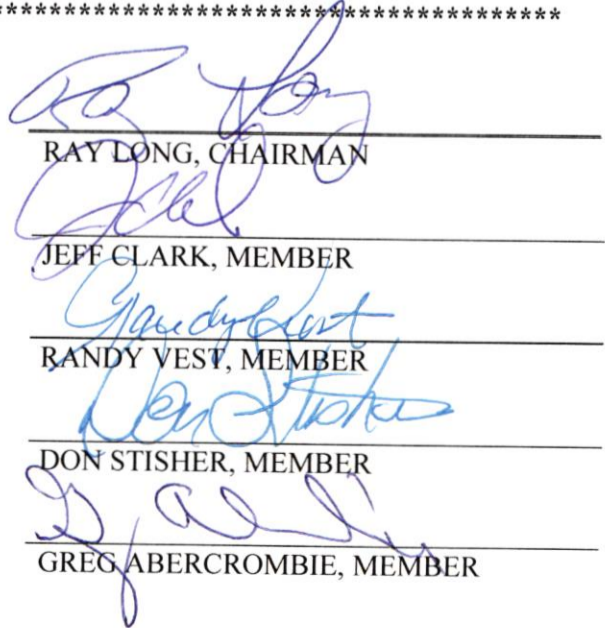 ************************************************
Ray Long
RAY LONG, CHAIRMAN
JEFF CLARK, MEMBER
Randy Vest
RANDY VEST, MEMBER
Don Stisher
DON STISHER, MEMBER
GREG ABERCROMBIE, MEMBER